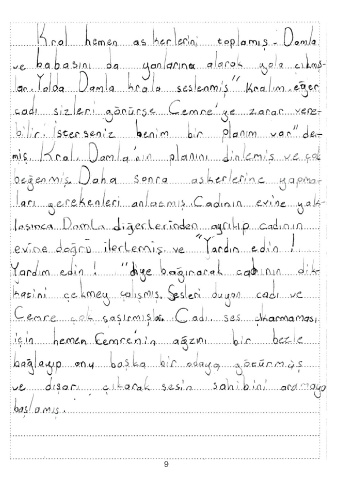 Kral hemen askerlerini toplamış. Damla
ve babasını da yanlarına alarak yola çıkmış-
lar. Yolda Damla krala seslenmiş "Kralım, eğer
cadı sizleri görürse Cemre'ye zarar vere-
bilir. İsterseniz benim bir planım var" de-
miş. Kral, Damla'nın planını dinlemiş ve çok
beğenmiş. Daha sonra askerlerine yapma-
ları gerekenleri anlatmış. Cadının evine yak-
laşınca Damla diğerlerinden ayrılıp cadının
evine doğru ilerlemiş ve "Yardın edin !
Yardım edin ! "diye bağırarak cadının dik-
katini çekmey çalışmış. Sesleri duyan cadı ve
Cemre çok şaşırmış. Cadı, ses çıkarmaması
için hemen Cemre'nin ağzını bir bezle
bağlayıp onu başka bir odaya götürmüş
ve dışarı çıkarak sesin sahibini aramaya
başlamış.
9